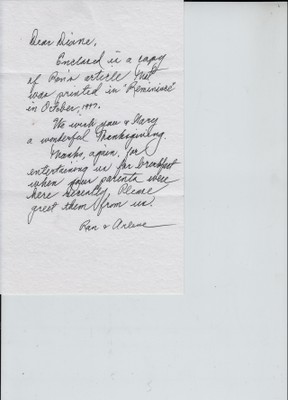 Dear Diane,
Enclosed is a copy
of Ron's article that
was printed in "Reminisce"
in October, 1997.
We wish you & Harry
a wonderful Thanksgiving.
Thanks, again, for
entertaining us for breakfast
when your parents were
here recently. Please
greet them from us.
Ron & Arlene